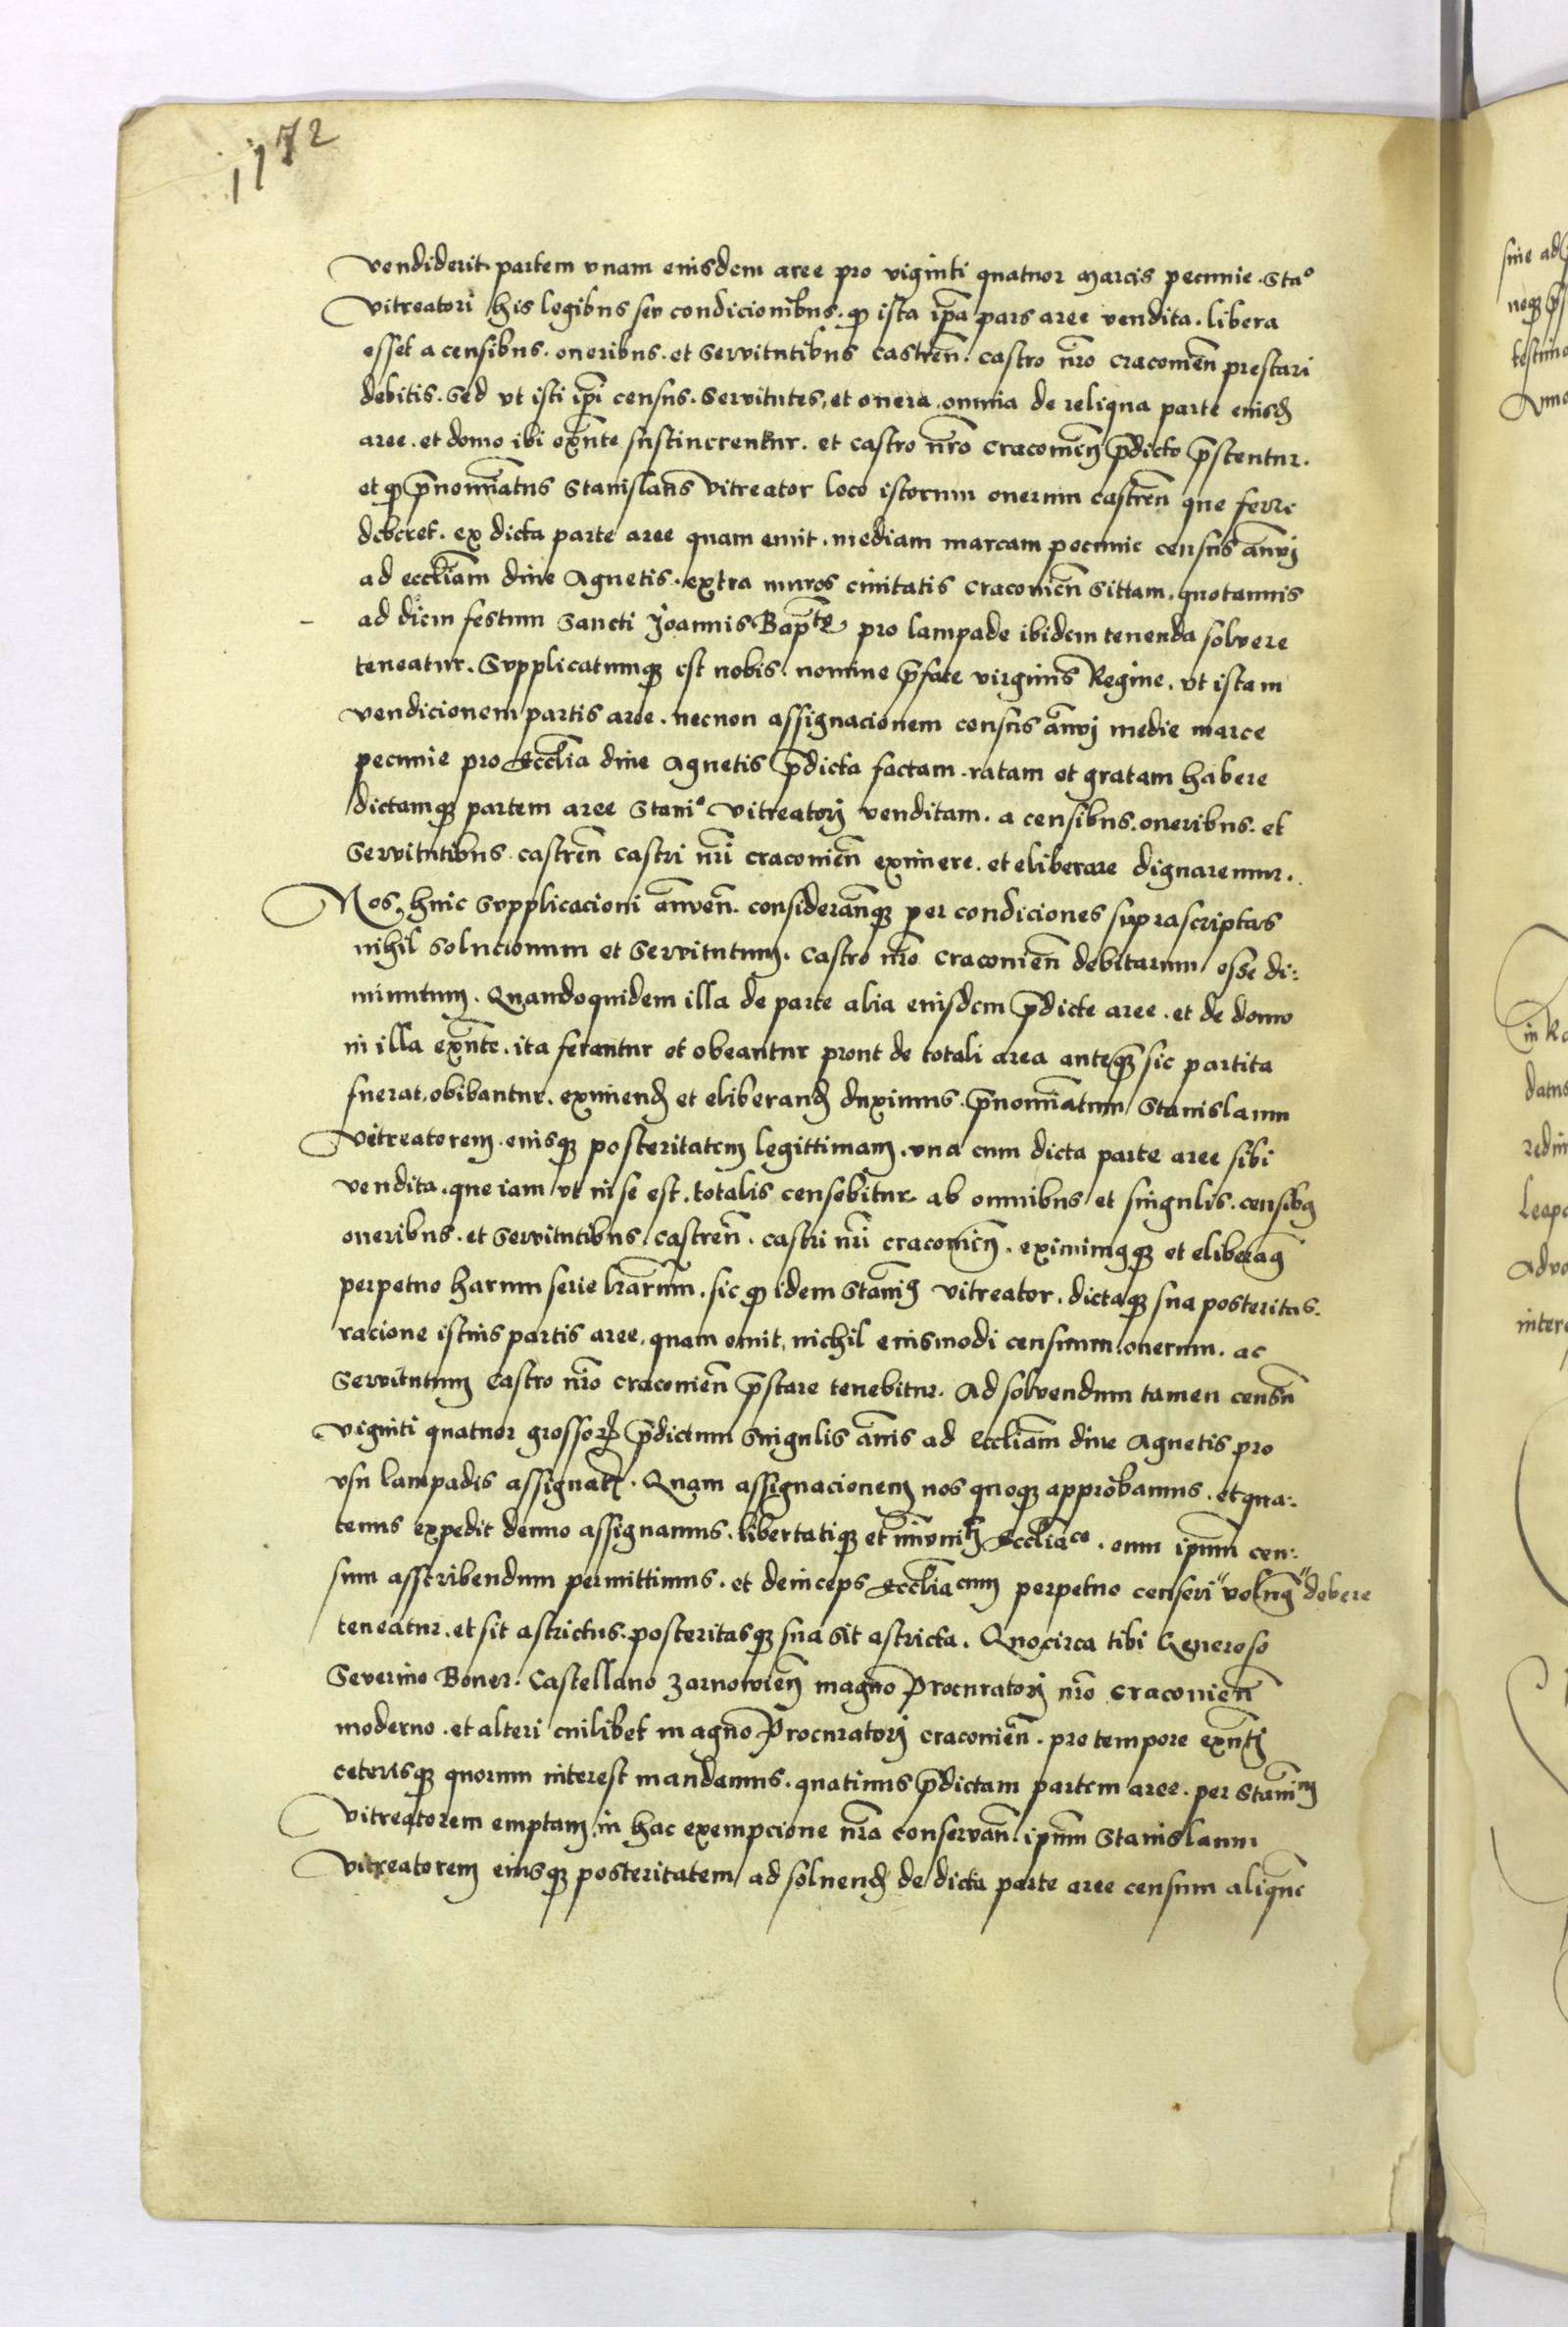 1172
vendiderit partem vnam eiusdem aree pro viginti quatuor Marcis pecunie. Sta°
vitreatori his legibus seu condicionibus. qp ista ip̄a pars aree vendita. libera
esset a censibus. oneribus. et Servitutibus castreñ. castro nr̄o cracouieñ prestari
debitis. Sed vt isti ip̄i census. Servitutes, et onera omnia de reliqua parte eiusd
aree. et domo ibi exn̄te sustinerentur. et castro nr̄o cracouieñ p̄dicto p̄stentur.
et qp p̄noīatus Stanislaus vitreator loco istorum onerum castreñ que ferre
deberet. ex dicta parte aree quam emit. mediam marcam pecunie census añuj
ad eccl̄iam diue Agnetis. extra muros ciuitatis Cracouieñ Sittam. quotannis
ad diem festum Sancti Joannis Bap̄te pro lampade ibidem tenenda soluere
teneatur. Supplicatumqȝ est nobis. nomine p̄fate virginis Regine. vt istam
vendicionem partis aree. necnon assignacionem census añuj medie marce
pecunie pro Eccl̄ia diue Agnetis p̄dicta factam. ratam et gratam habere
dictamqȝ partem aree Stani° vitreatorj venditam. a censibus. oneribus. et
Servitutibus castreñ castri nr̄i cracouieñ eximere. et eliberare dignaremur.
Nos huic Supplicacioni añueñ. considerañqȝ per condiciones suprascriptas
nihil Solucionum et Servitutum. Castro nr̄o Cracouieñ debitarum esse di:
minutum. Quandoquidem illa de parte alia eiusdem p̄dicte aree. et de domo
in illa exn̄te. ita ferantur et obeantur prout de totali area anteqȝ sic partita
fuerat, obibantur. eximend et eliberand duximus. p̄noīatum Stanislaum
vitreatorem. eiusqȝ posteritatem legittimam. vna cum dicta parte aree sibi
vendita. que iam vt in se est. totalis censebitur ab omnibus et singulis. censibꝯ
oneribus. et Servitutibus. castreñ. castri nr̄i cracouieñ. eximimꝯqȝ et eliberaꝯ
perpetuo harum serie l̄rarum. sic qp idem Staniꝯ vitreator. dictaqȝ sua posteritas.
racione istius partis aree, quam emit, nichil eiusmodi censuum onerum. ac
Servitutum Castro nr̄o Cracouieñ p̄stare tenebitur. Ad soluendum tamen censū
viginti quatuor grossorꝝ p̄dictum Singulis añis ad Eccl̄iam diue Agnetis pro
vsu lampadis assignatꝫ. Quam assignacionem nos quoqȝ approbamus. et qua:
tenus expedit denuo assignamus. libertatiqȝ et īmunitꝫ Eccl̄iace. eum ipm̄ cen:
sum asscribendum permittimus. et deinceps Eccl̄iacum perpetuo censeri "volumꝯ" debere
teneatur. et sit astrictus. posteritasqȝ sua sit astricta. Quocirca tibi Generoso
Severino Boner. Castellano Zarnowieñ magno Procuratorj nr̄o Cracouieñ
moderno. et alteri cuilibet magno Procuratorj cracouieñ. pro tempore exn̄tj
ceterisqȝ quorum interest mandamus. quatinus p̄dictam partem aree. per Staniuꝫ
vitreatorem emptam in hac exempcione nr̄a conservañ. ipm̄ Stanislaum
vitreatorem eiusqȝ posteritatem ad soluend de dicta parte aree censum aliquē